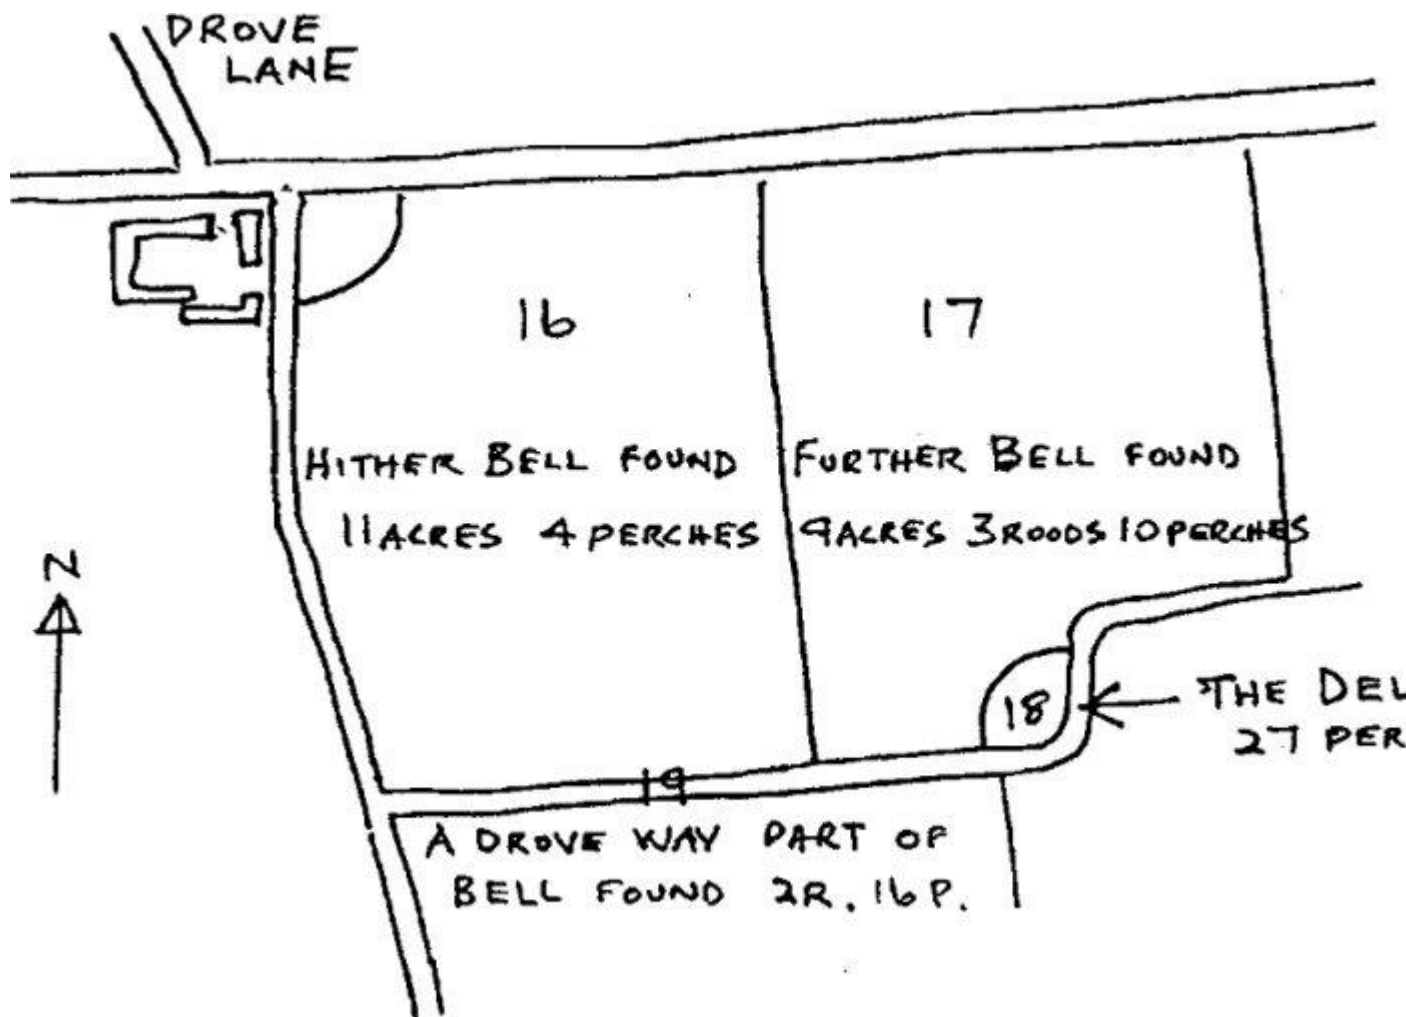 DROVE
LANE
16
17
HITHER BELL FOUND
11 ACRES 4 PERCHES
FURTHER BELL FOUND
9 ACRES 3 ROODS 10 PERCHES
N
18
THE DEL
27 PER
19
A DROVE WAY PART OF
BELL FOUND 2R. 16P.